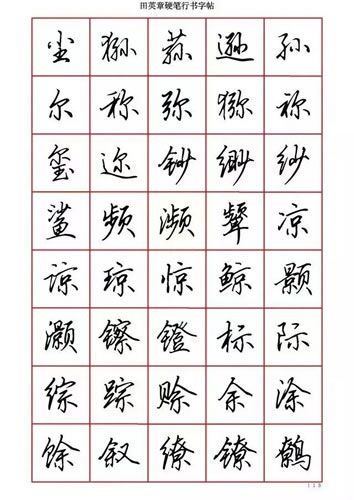 田英章硬笔行书字帖
尘 狲 荪 逊 孙
尔 称 弥 猕 祢
玺 迩 钞 缈 纱
鲨 频 濒 颦 凉
谅 琼 惊 鲸 颢
灏 镲 镫 标 际
综 踪 赊 余 涂
馀 叙 缭 镣 鹩